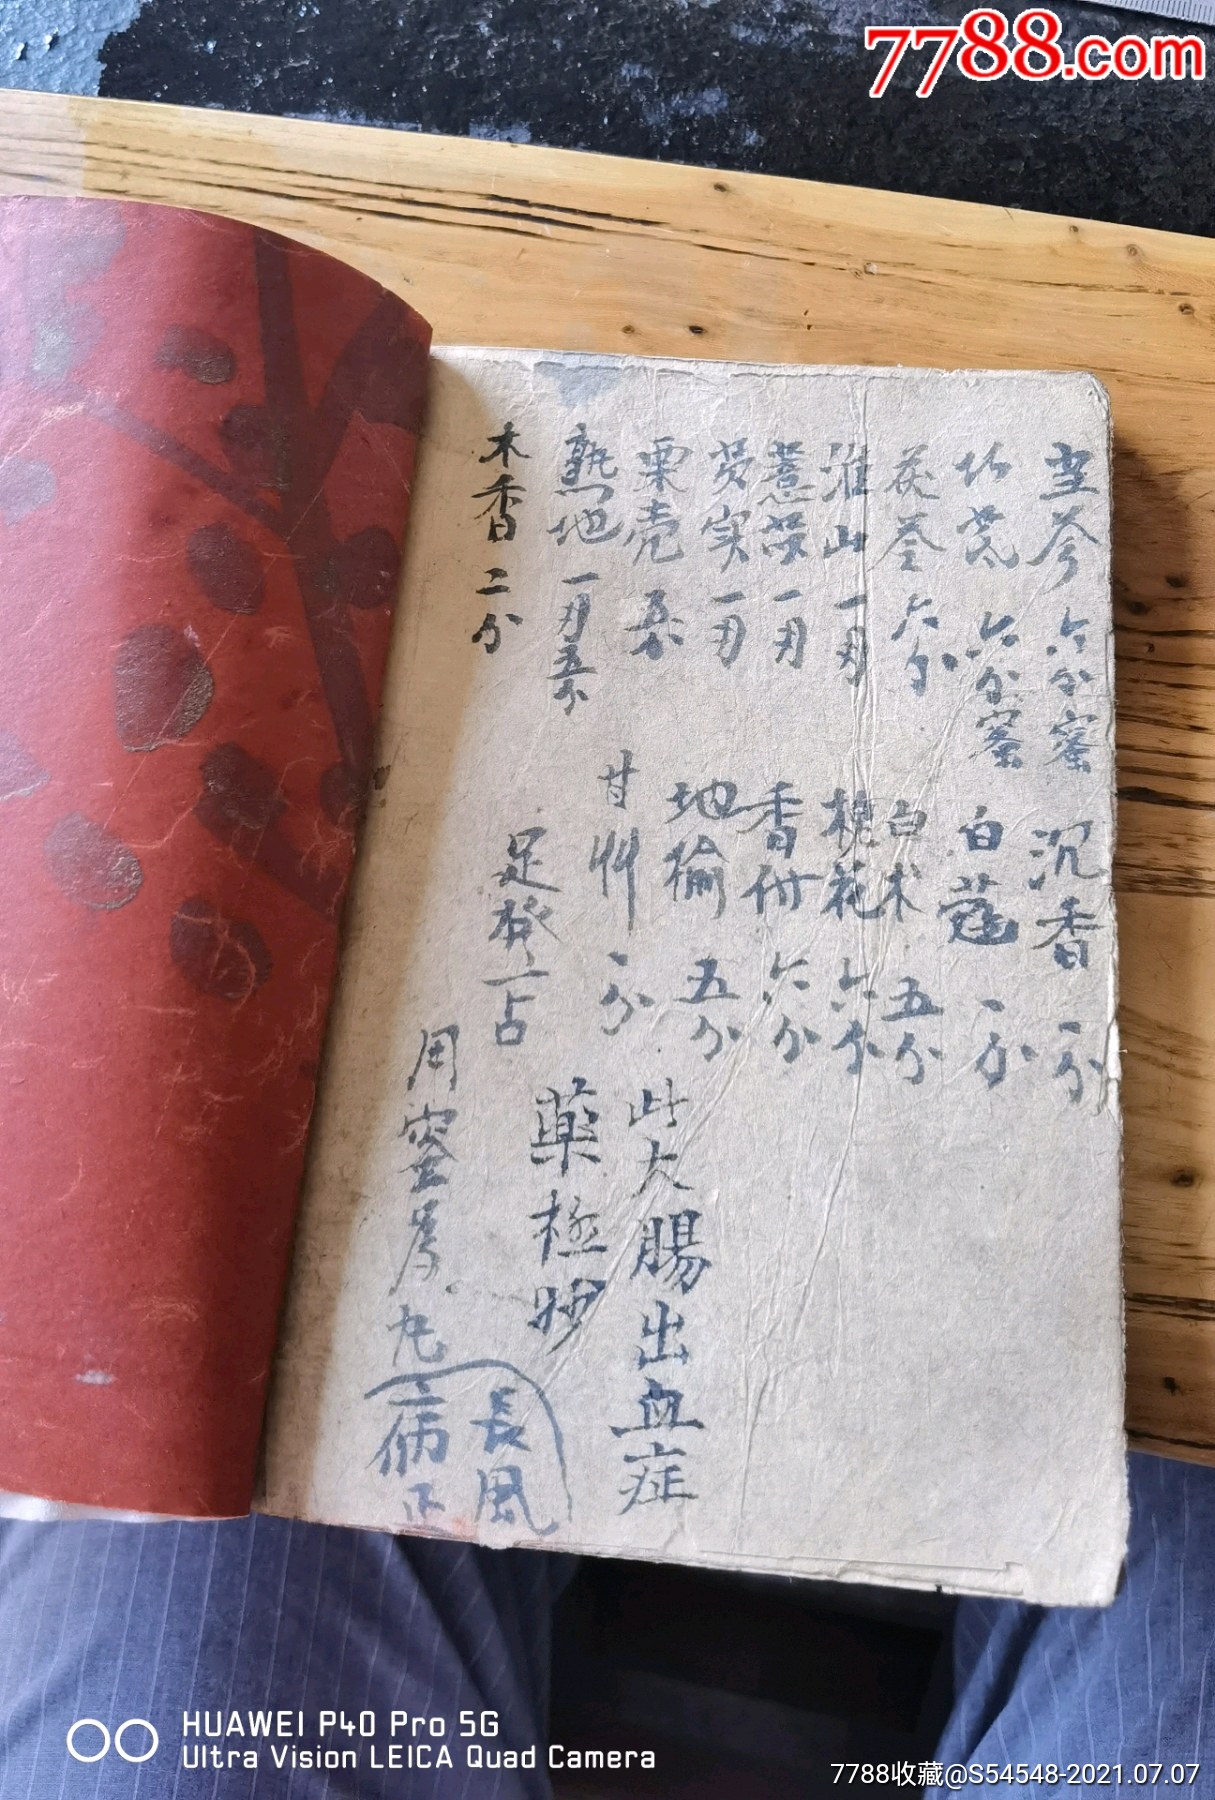 7788.com
芩 六分蜜
芪 六分蜜
茯苓 六分
淮山 一刃
薏苡 一刃
芡实 一刃
粟壳 五分
熟地 一刃五分
木香 二分
沉香 一分
白蔻 一分
白术 五分
槐花 六分
香付 六分
地榆 五分
甘艸 一分
此大腸出血症
藥極妙
用蜜 为丸
長風
HUAWEI P40 Pro 5G
Ultra Vision LEICA Quad Camera
7788收藏@S54548-2021.07.07